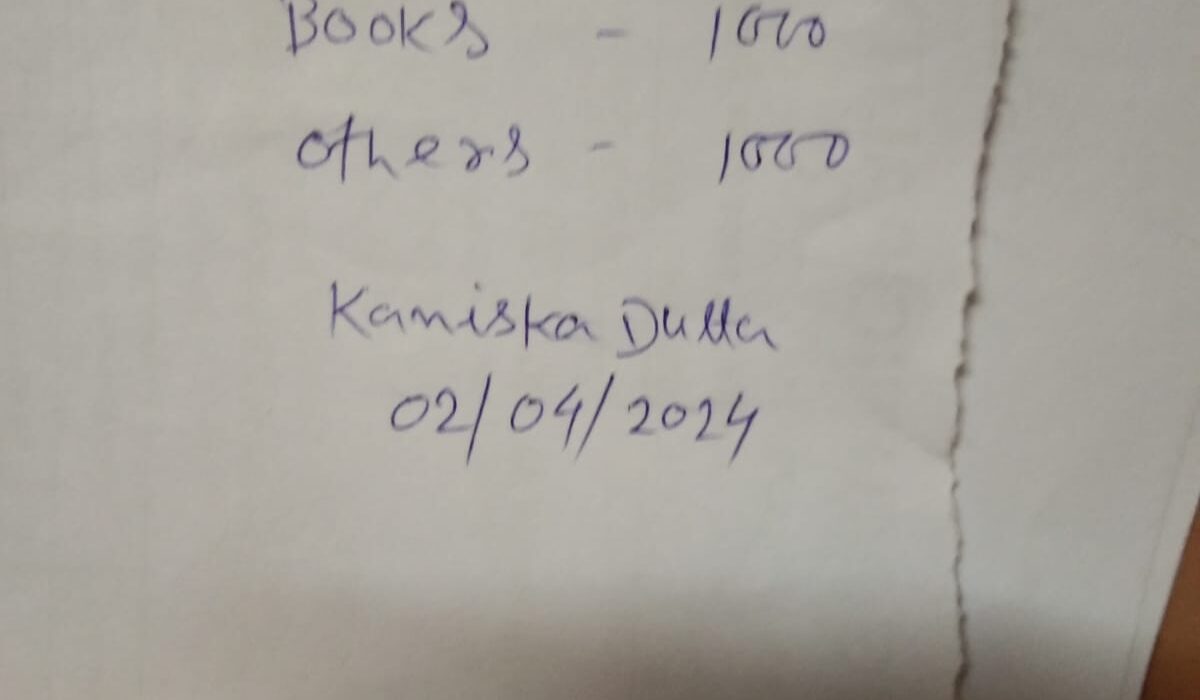 Books - 1000
Others - 1000
Kaniska Dutta
02/04/2024